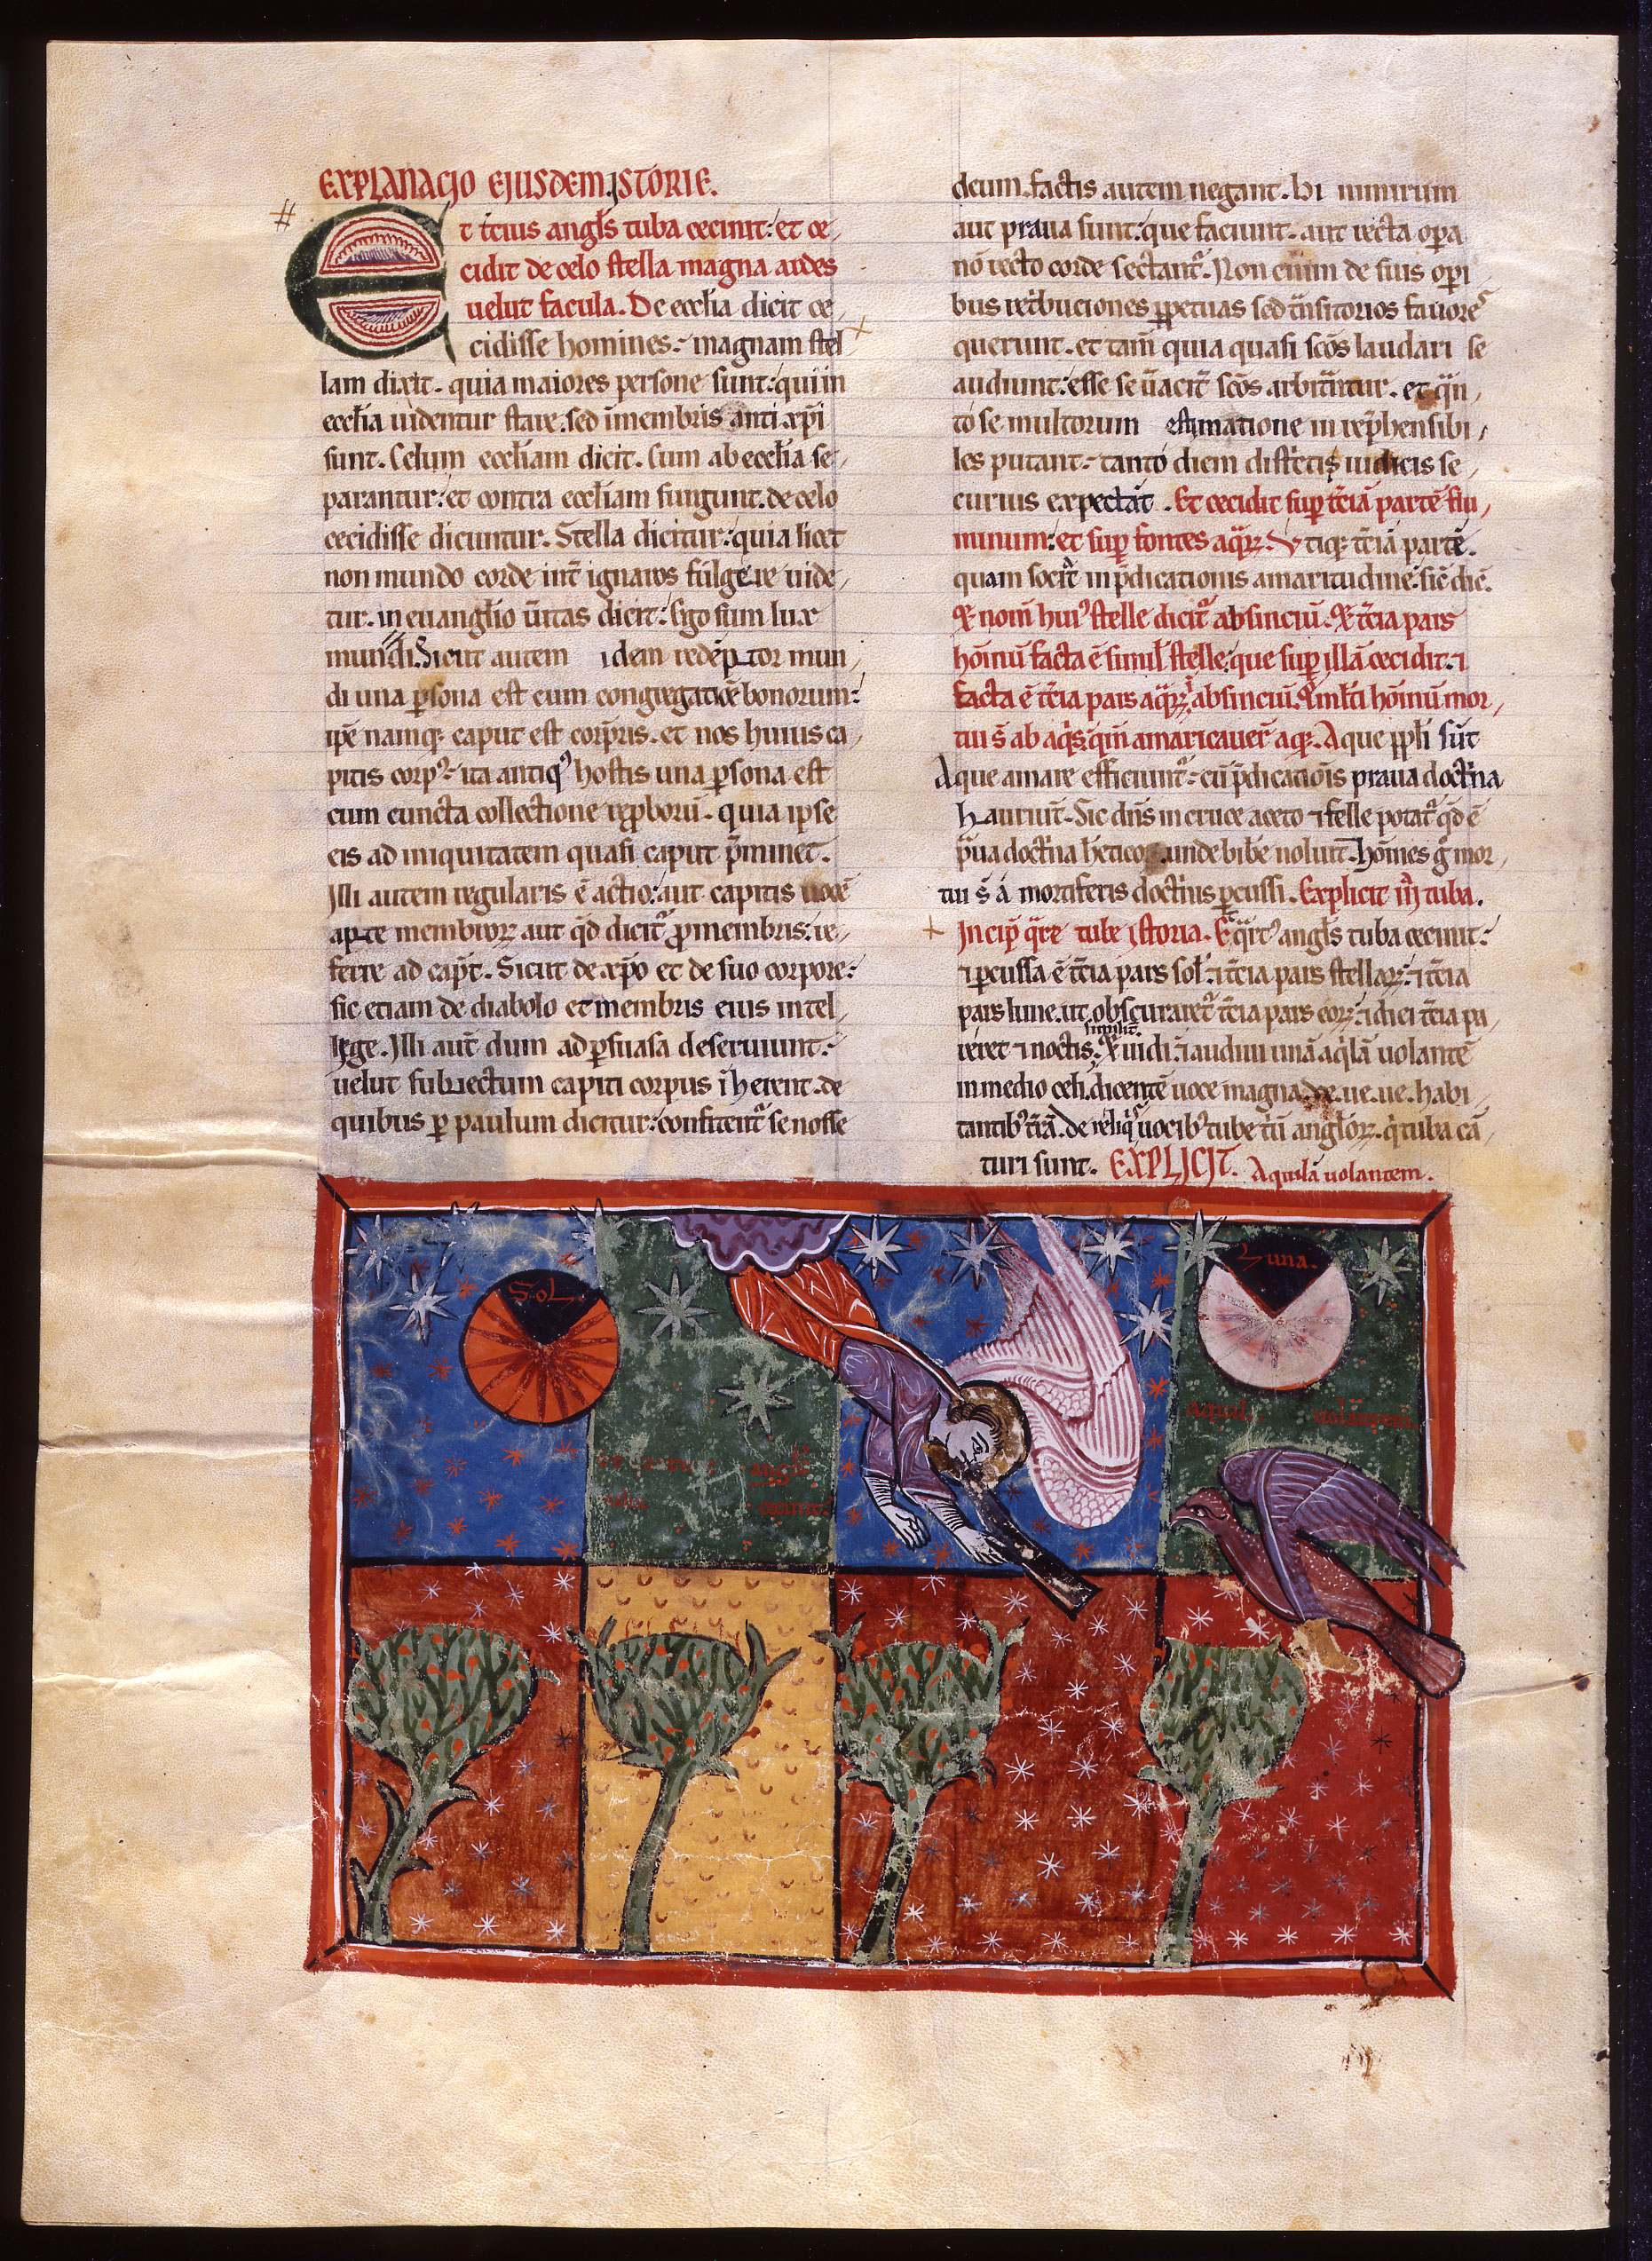 EXPLANACJO EJUSDEM JSTORIE.
Et t̄cius angl̄s tuba cecinit: et ce,
cidit de celo stella magna ardēs
uelut facula. De eccl̄ia dicit ce,
cidisse homines: magnam stel
lam dixit. quia maiores persone sunt: qui in
eccl̄ia uidentur stare. sed īmembris anti xp̄i
sunt. Celum eccl̄iam dicit. Cum ab eccl̄ia se,
parantur: et contra eccl̄iam surgunt. de celo
cecidisse dicuntur. Stella dicitur: quia licet
non mundo corde int̄ ignaros fulgere uide,
tur. in euangl̄io ūitas dicit: Ego sum lux
mundi. Sicut autem idem redēptor mun,
di una ꝑsona est cum congregatiōē bonorum:
ip̄e namq; caput est corp̄ris. et nos huius ca,
pitis corpꝰ: ita antiqꝰ hostis una ꝑsona est
cum cuncta collectione reꝓborū. quia ipse
eis ad iniquitatem quasi caput p̄minet.
Illi autem regularis ē actio: aut capitis uocē
aperte membroꝝ aut qd̄ dicit᷑ ꝓ membris: re,
ferre ad cap̄t. Sicut de xp̄o et de suo corpore:
sic etiam de diabolo et membris eius intel,
lege. Illi aut̄ dum ad ꝑsuasa deseruiunt:
uelut subiectum capiti corpus īherent. de
quibus ꝑ paulum dicitur: confitent᷑ se nosse
deum. factis autem negant. hi nimirum
aut praua sunt: que faciunt. aut recta oꝑa
nō recto corde sectant᷑. Non enim de suis oꝑi
bus ret̄buciones ꝑpetuas sed t̄nsitorios fauoreˢ
querunt. et tam̄ quia quasi sc̄os laudari se
audiunt: esse se ūacit̄ sc̄os arbit̄ntur. et qn̄,
to se multorum estimatione inrep̄hensibi,
les putant: tanto diem district̄ iudicis se,
curius expectāt. Et cecidit suꝑ t̄ciā partē flu,
minum: et suꝑ fontes aqꝝ. Vtiq; t̄ciā partē.
quam soci᷑t in p̄dicationis amaritudinē: sic̄ dic̄.
Et nom̄ huiꝰ stelle dicit᷑ absinciū. Et t̄cia pars
hōinū facta ē simil̄ stelle: que suꝑ illā cecidit. ⁊
facta ē t̄cia pars aqꝝ: absinciū. Et ml̄ti hōinū mor,
tui s̄ ab aqˢ: qm̄ amaricauer̄ aq;. Aque ppl̄i sūt
Aque amare efficiunt᷑: cū p̄dicatiōis praua doct̄na
hauriūt. Sic dn̄s in cruce aceto ⁊ felle potat᷑ qd̄ ē
p̄ua doct̄na h̄etico unde bibē noluit. Hōines g̊ mor,
tui s̄ a mortiferis doct̄nis ꝑcussi. Explicit īīī tuba.
Incip̄ q̄rte tube istoria. Et q̄rtꝰ angl̄s tuba cecinit:
⁊ ꝑcussa ē t̄cia pars sol̄: ⁊ t̄cia pars stellaꝝ: ⁊ t̄cia
pars lune. ut obscuraret᷑ t̄cia pars eoꝝ: ⁊ diei t̄cia pa,
reret ⁊ noctis simil̄it̄. Et uidi: ⁊ audiui unā aqⁱlā uolantē
in medio celi. dicentē uoce magna. ue. ue. ue. habi,
tantibꝰ t̄rā. de reliqⁱˢ uocibꝰ tube t̄iū angl̄oꝝ. qⁱ tuba cā,
turi sunt. EXPLICJT. Aquilā uolantem.
Sol
Luna.
aquil uolantem
angl̄s
tuba cecinit